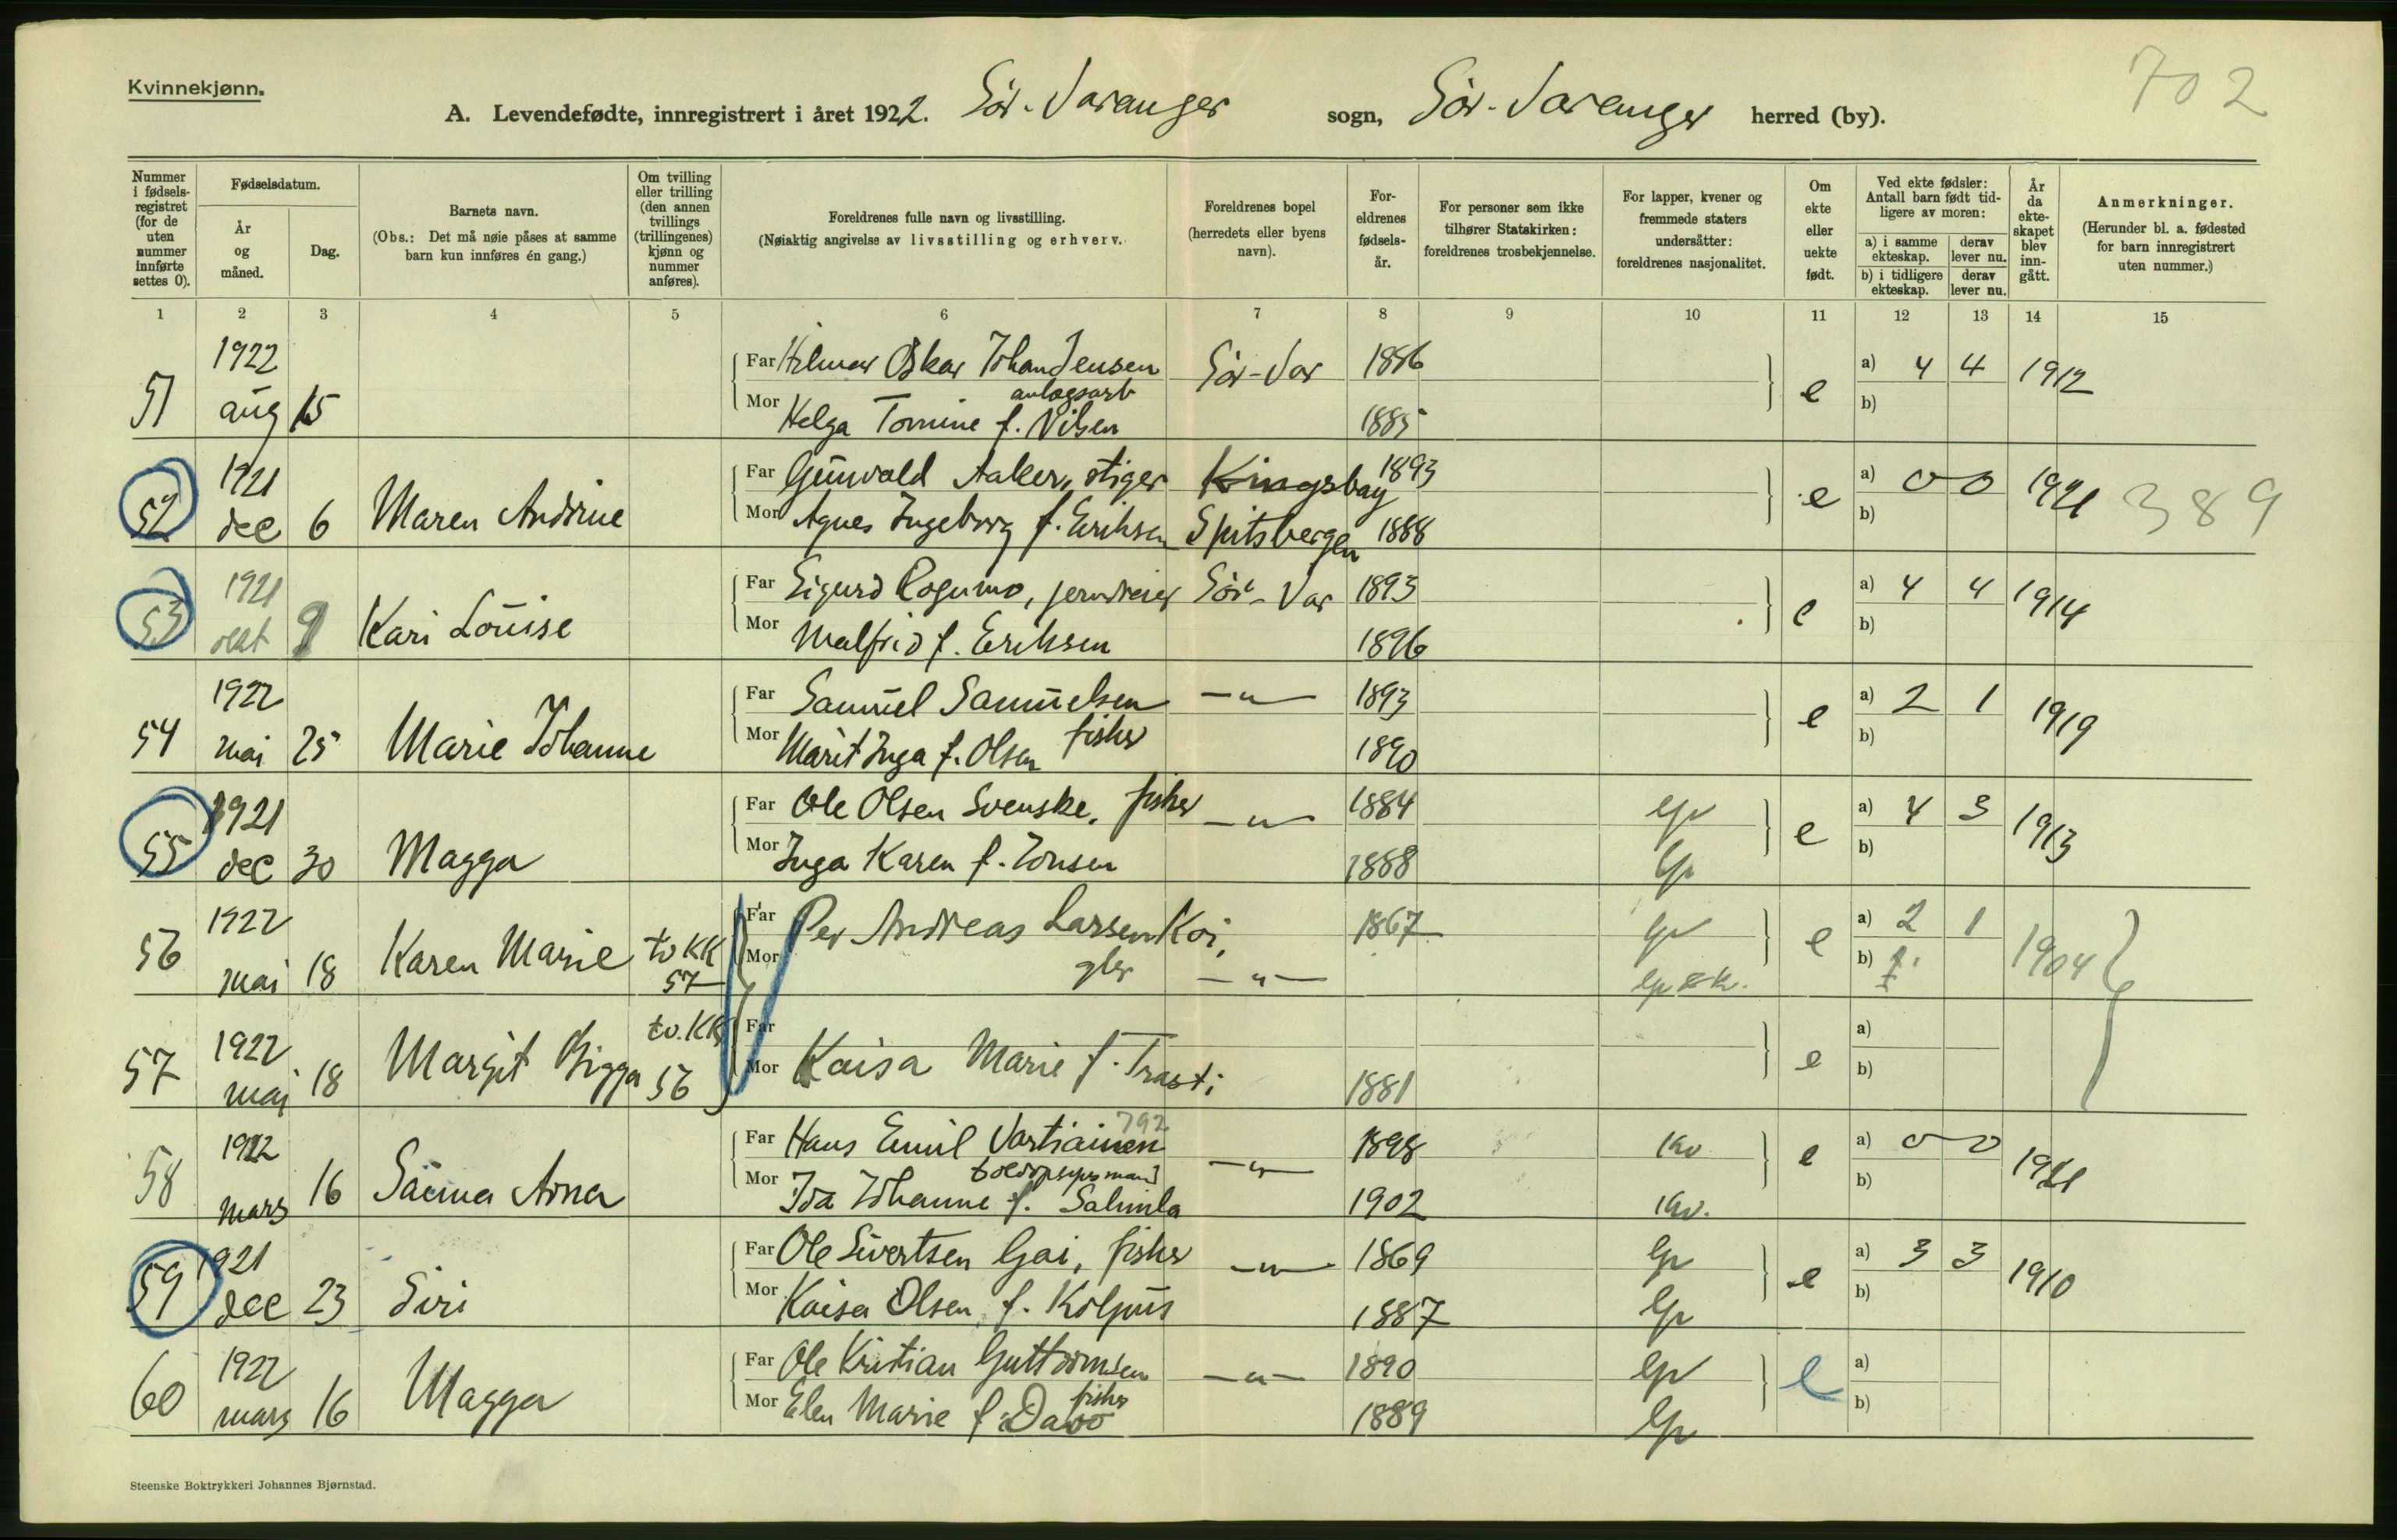 Kvinnekjønn.
702
A. Levendefødte, innregistrert i året 1922. Sör-Varanger sogn, Sör-Varanger herred (by).
Nummer i fødsels-registret (for de uten nummer innførte settes 0).
Fødselsdatum.
År og måned.
Dag.
Barnets navn.
(Obs.: Det må nøie påses at samme barn kun innføres én gang.)
Om tvilling eller trilling (den annen tvillings (trillingenes) kjønn og nummer anføres).
Foreldrenes fulle navn og livsstilling.
(Nøiaktig angivelse av livsstilling og erhverv.
Foreldrenes bopel (herredets eller byens navn).
For-eldrenes fødsels-år.
For personer som ikke tilhører Statskirken: foreldrenes trosbekjennelse.
For lapper, kvener og fremmede staters undersåtter: foreldrenes nasjonalitet.
Om ekte eller uekte født.
Ved ekte fødsler: Antall barn født tid-ligere av moren:
a) i samme ekteskap.
derav lever nu.
b) i tidligere ekteskap.
derav lever nu.
År da ekte-skapet blev inn-gått.
Anmerkninger.
(Herunder bl. a. fødested for barn innregistrert uten nummer.)
1 2 3 4 5 6 7 8 9 10 11 12 13 14 15
51 1922 aug 15
Far Hilmar Oskar Johan Jensen Sör-Var 1886
anlegsarb
Mor Helga Tomine f. Nilsen 1885
e a) 4 4 1912
b)
52 1921 dec 6 Maren Andrine
Far Gunvald Aaker, stiger Kingsbay 1893
Mor Agnes Ingeborg f. Eriksen Spitsbergen 1888
e a) 0 0 1921 389
b)
53 1921 okt 9 Kari Louise
Far Sigurd Rogumo, jerndreier Sör-Var 1893
Mor Malfrid f. Eriksen 1896
e a) 4 4 1914
b)
54 1922 mai 25 Marie Johanne
Far Samuel Samuelsen —„— 1893
fisker
Mor Marit Inga f. Olsen 1890
e a) 2 1 1919
b)
55 1921 dec 30 Magga
Far Ole Olsen Svenske, fisker —„— 1884 lp
Mor Inga Karen f. Jonsen 1888 lp
e a) 4 3 1913
b)
56 1922 mai 18 Karen Marie tv KK 57
Far Per Andreas Larsen Koi, 1867 lp
Mor —„—
e a) 2 1 1904
b)
57 1922 mai 18 Margit Bigga tv. KK 56
Far
Mor Kaisa Marie f. Trasti 1881
e a)
b)
58 1922 mars 16 Saima Arna
792
Far Hans Emil Vartiainen —„— 1898 kv
Mor Ida Johanne f. Salmila 1902 kv.
e a) 0 0 1921
b)
59 1921 dec 23 Siri
Far Ole Sivertsen Gai, fisker —„— 1869 lp
Mor Kaisa Olsen, f. Kolpus 1887 lp
e a) 3 3 1910
b)
60 1922 mars 16 Magga
Far Ole Kristian Guttormsen —„— 1890 lp
fisker
Mor Elen Marie f. Davo 1889 lp
e a)
b)
Steenske Boktrykkeri Johannes Bjørnstad.